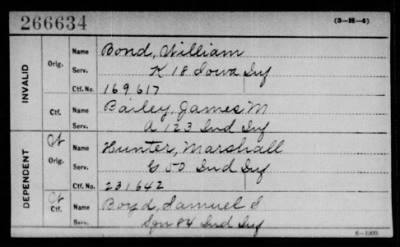 266634
(3-H-4)
INVALID
Orig.
Name Bond, William
Serv. K 18 Iowa Inf
Ctf. No. 169617
Ctf.
Name Bailey, James M
Serv. A 123 Ind Inf
DEPENDENT
Ct
Orig.
Name Hunter, Marshall
Serv. G 50 Ind Inf
Ctf. No. 231642
Ct
Ctf.
Name Boyd, Samuel S
Serv. 84 Ind Inf